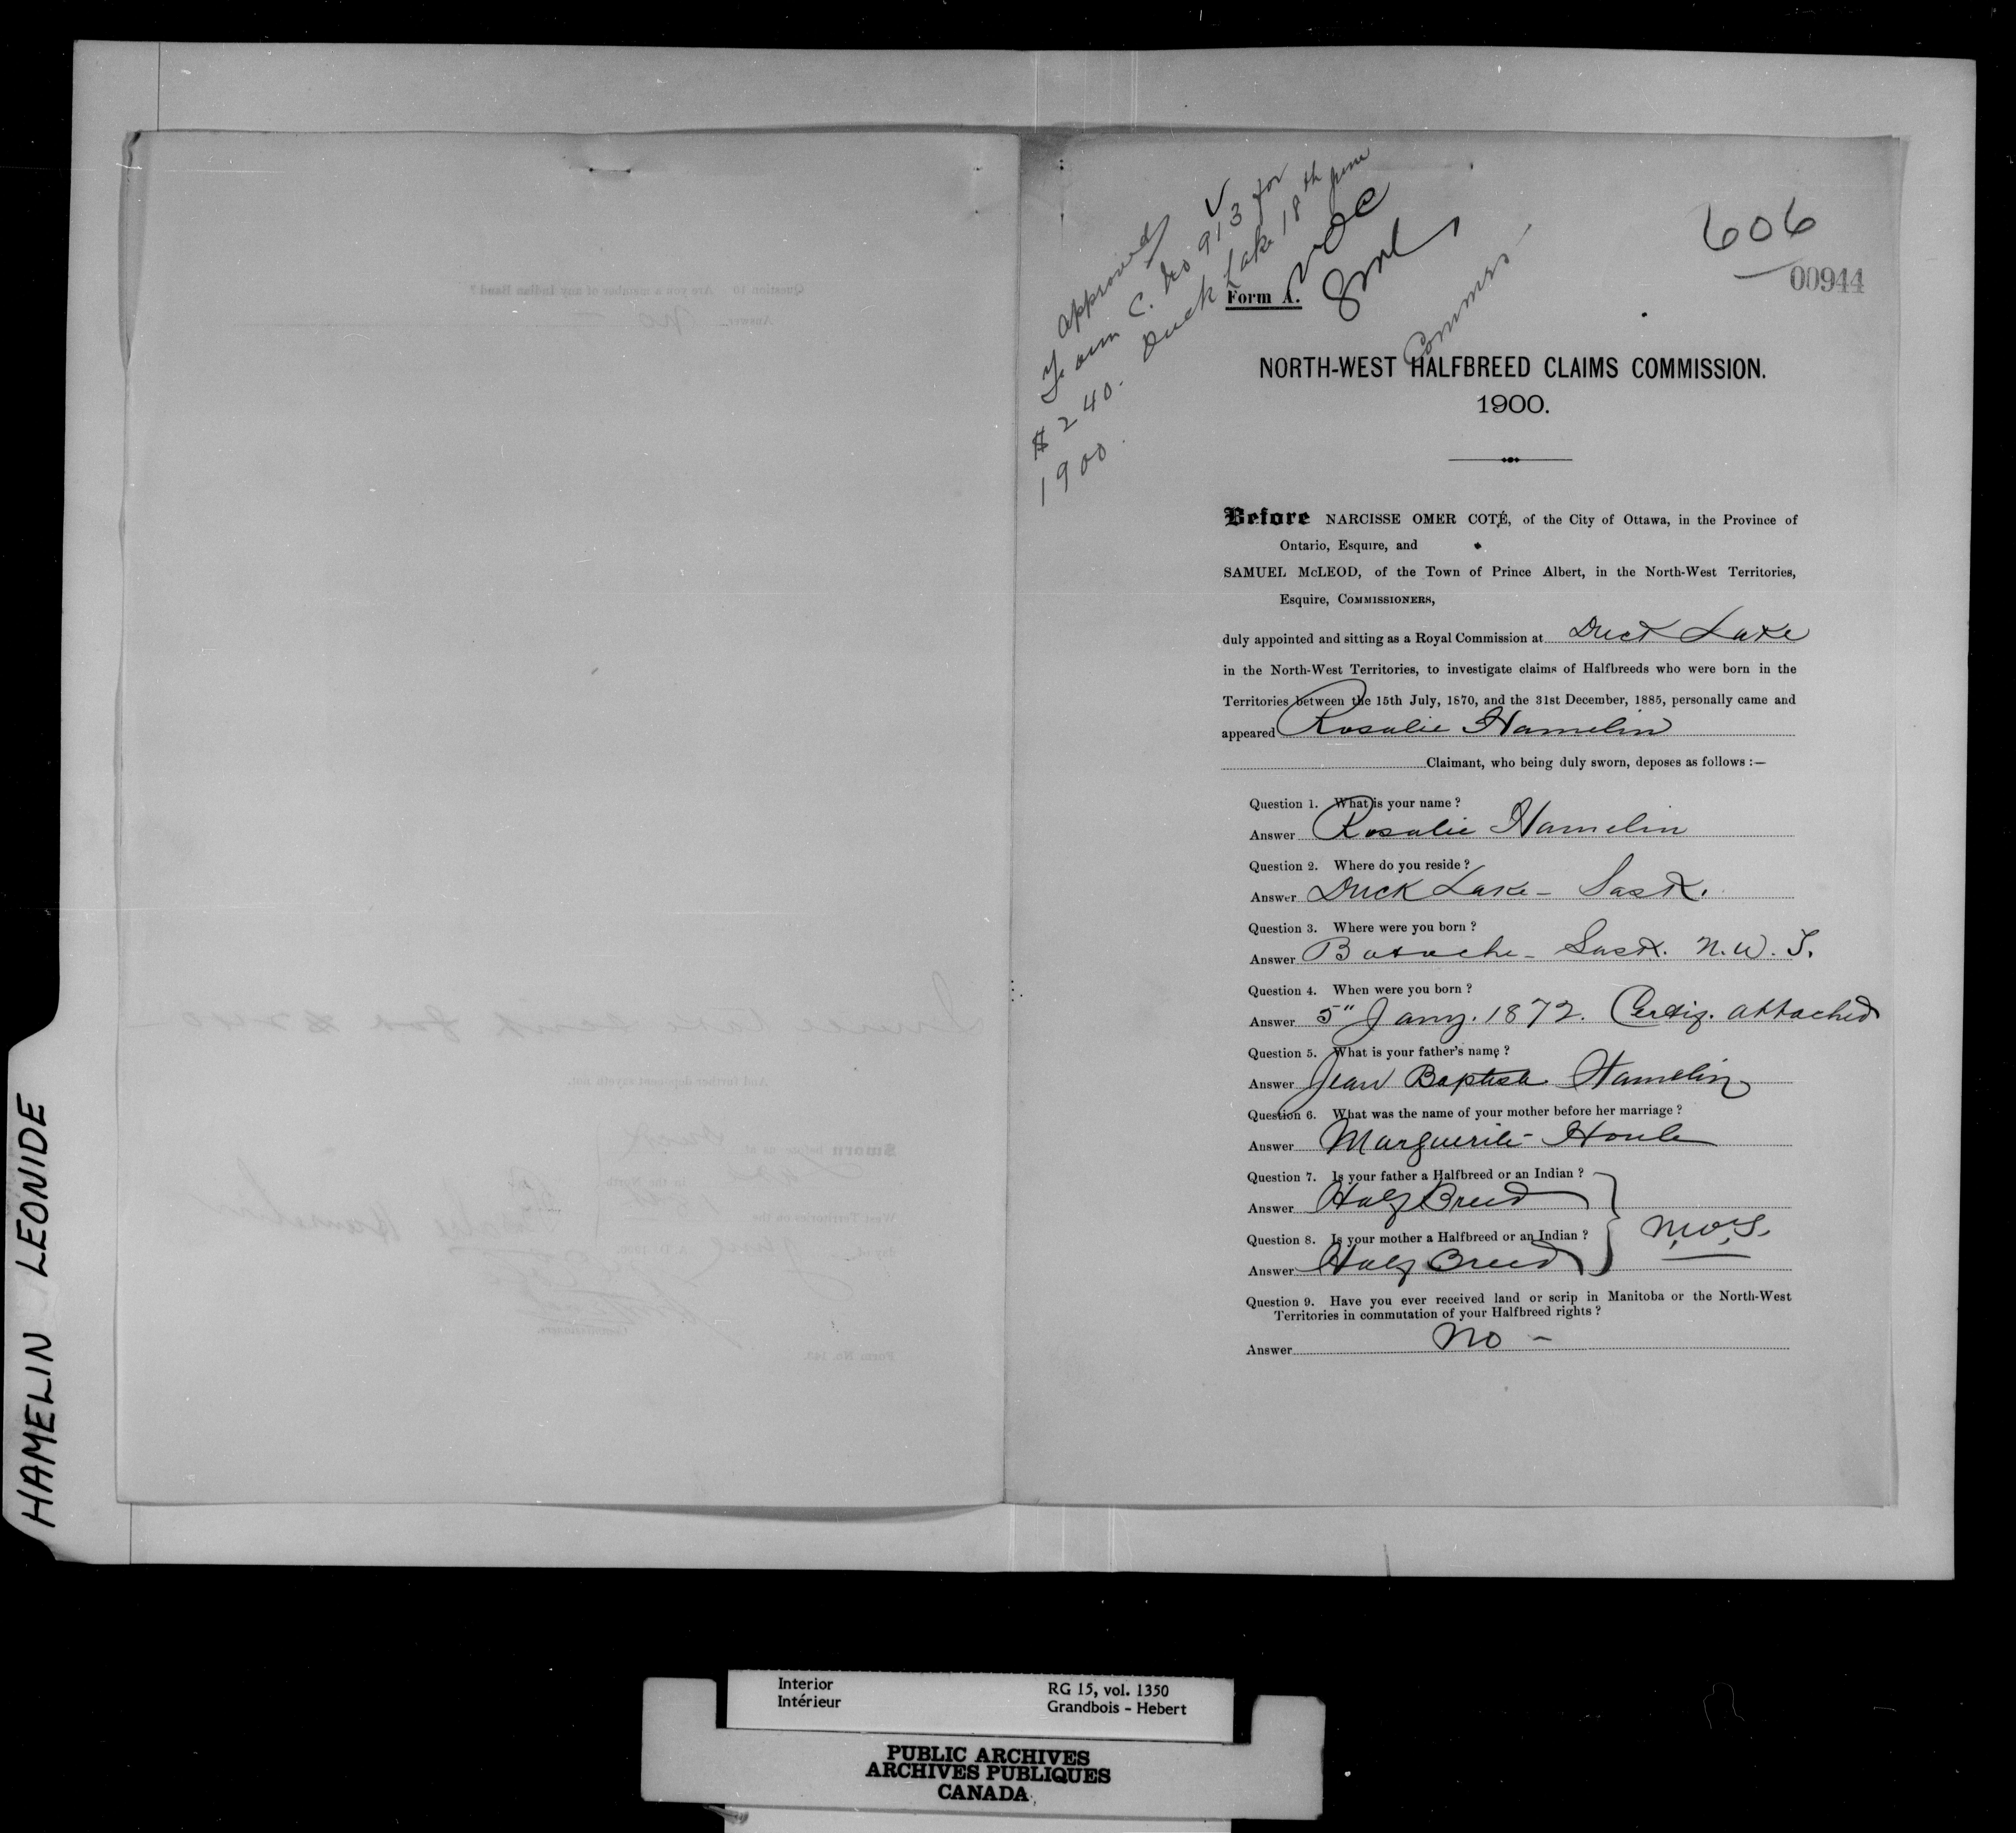 HAMELIN LEONIDE
Question 10 Are you a member of any Indian Band ?
Answer No
Issue scrip for $240
And further deponent sayeth not.
Sworn before us at Duck
Lake in the North
West Territories on the
day of June A. D. 1900.
Rosalie Hamelin
Commissioners.
Form No. 143.
Approved ✓
Form C. No 913 for
$240. Duck Lake 18th June
1900.
NOC
SML
Commrs
606
00944
Form A.
NORTH-WEST HALFBREED CLAIMS COMMISSION.
1900.
Before NARCISSE OMER COTÉ, of the City of Ottawa, in the Province of
Ontario, Esquire, and
SAMUEL McLEOD, of the Town of Prince Albert, in the North-West Territories,
Esquire, COMMISSIONERS,
duly appointed and sitting as a Royal Commission at Duck Lake
in the North-West Territories, to investigate claims of Halfbreeds who were born in the
Territories between the 15th July, 1870, and the 31st December, 1885, personally came and
appeared Rosalie Hamelin
Claimant, who being duly sworn, deposes as follows :—
Question 1. What is your name ?
Answer Rosalie Hamelin
Question 2. Where do you reside ?
Answer Duck Lake - Sask.
Question 3. Where were you born ?
Answer Batoche - Sask. N.W.T.
Question 4. When were you born ?
Answer 5" Jany. 1872. Certif. attached
Question 5. What is your father's name ?
Answer Jean Baptiste Hamelin
Question 6. What was the name of your mother before her marriage ?
Answer Marguerite Houle
Question 7. Is your father a Halfbreed or an Indian ?
Answer Half Breed
Question 8. Is your mother a Halfbreed or an Indian ?
Answer Half Breed
Question 9. Have you ever received land or scrip in Manitoba or the North-West
Territories in commutation of your Halfbreed rights ?
Answer No -
Interior RG 15, vol. 1350
Intérieur Grandbois - Hebert
PUBLIC ARCHIVES
ARCHIVES PUBLIQUES
CANADA